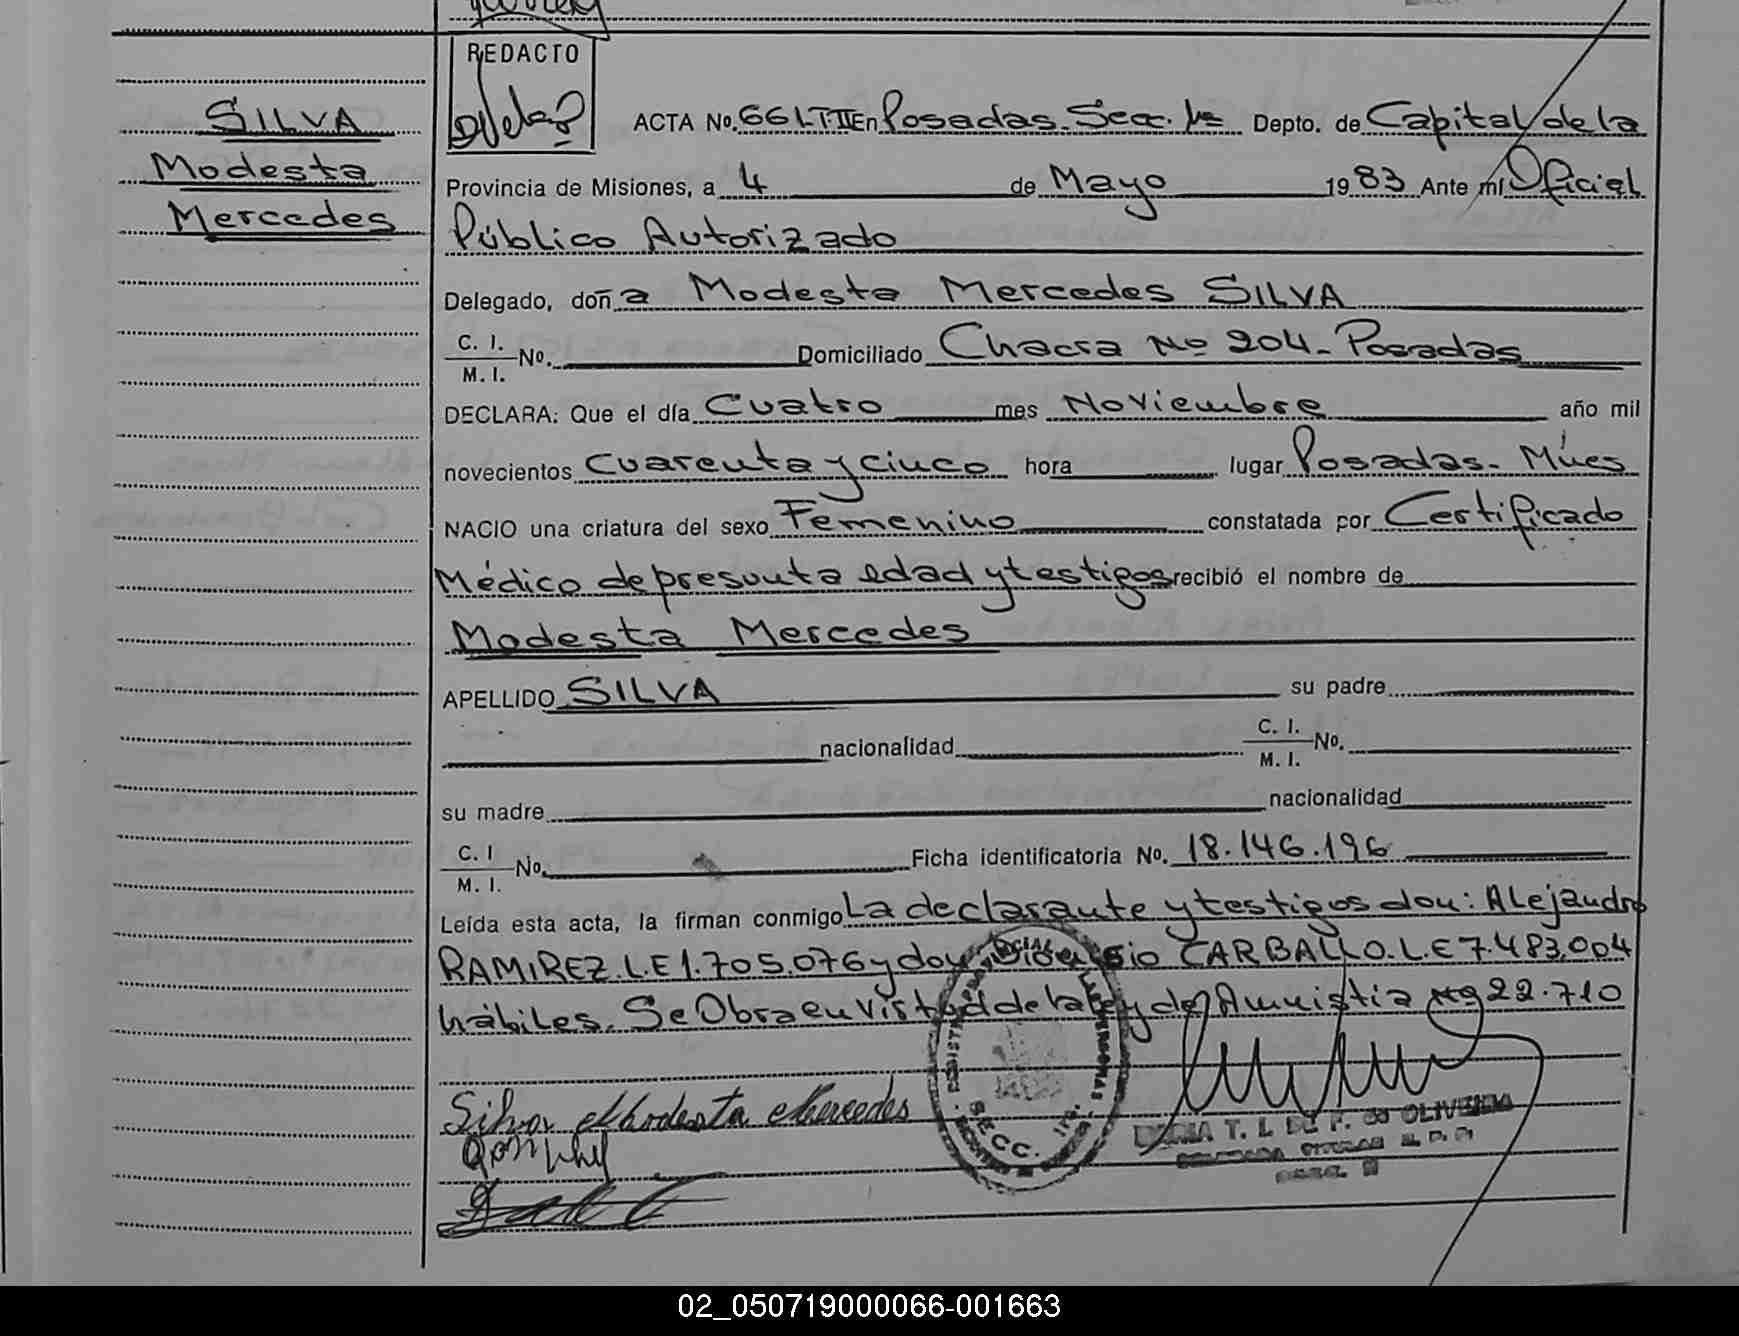 REDACTO
SILVA
Modesta
Mercedes
ACTA No. 66 L-TII En Posadas. Secc. 1ª Depto. de Capital de la
Provincia de Misiones, a 4 de Mayo 1983 Ante mí Oficial
Público Autorizado
Delegado, doña Modesta Mercedes SILVA
C. I. / M. I. No. Domiciliado Chacra Nº 204 - Posadas
DECLARA: Que el día Cuatro mes Noviembre año mil
novecientos Cuarenta y cinco hora lugar Posadas - Mnes
NACIO una criatura del sexo Femenino constatada por Certificado
Médico de presunta edad y testigos recibió el nombre de
Modesta Mercedes
APELLIDO SILVA su padre
nacionalidad C. I. / M. I. No.
su madre nacionalidad
C. I / M. I. No. Ficha identificatoria No. 18.146.196
Leída esta acta, la firman conmigo La declarante y testigos don: Alejandro
RAMIREZ. L.E 1.705.076 y don CARBALLO. L.E 7.483.004
hábiles. Se Obra en Virtud de la Ley de Amnistia Nº 22.710
Silva Modesta Mercedes
T. L. DE P. de OLIVEIRA
02_050719000066-001663